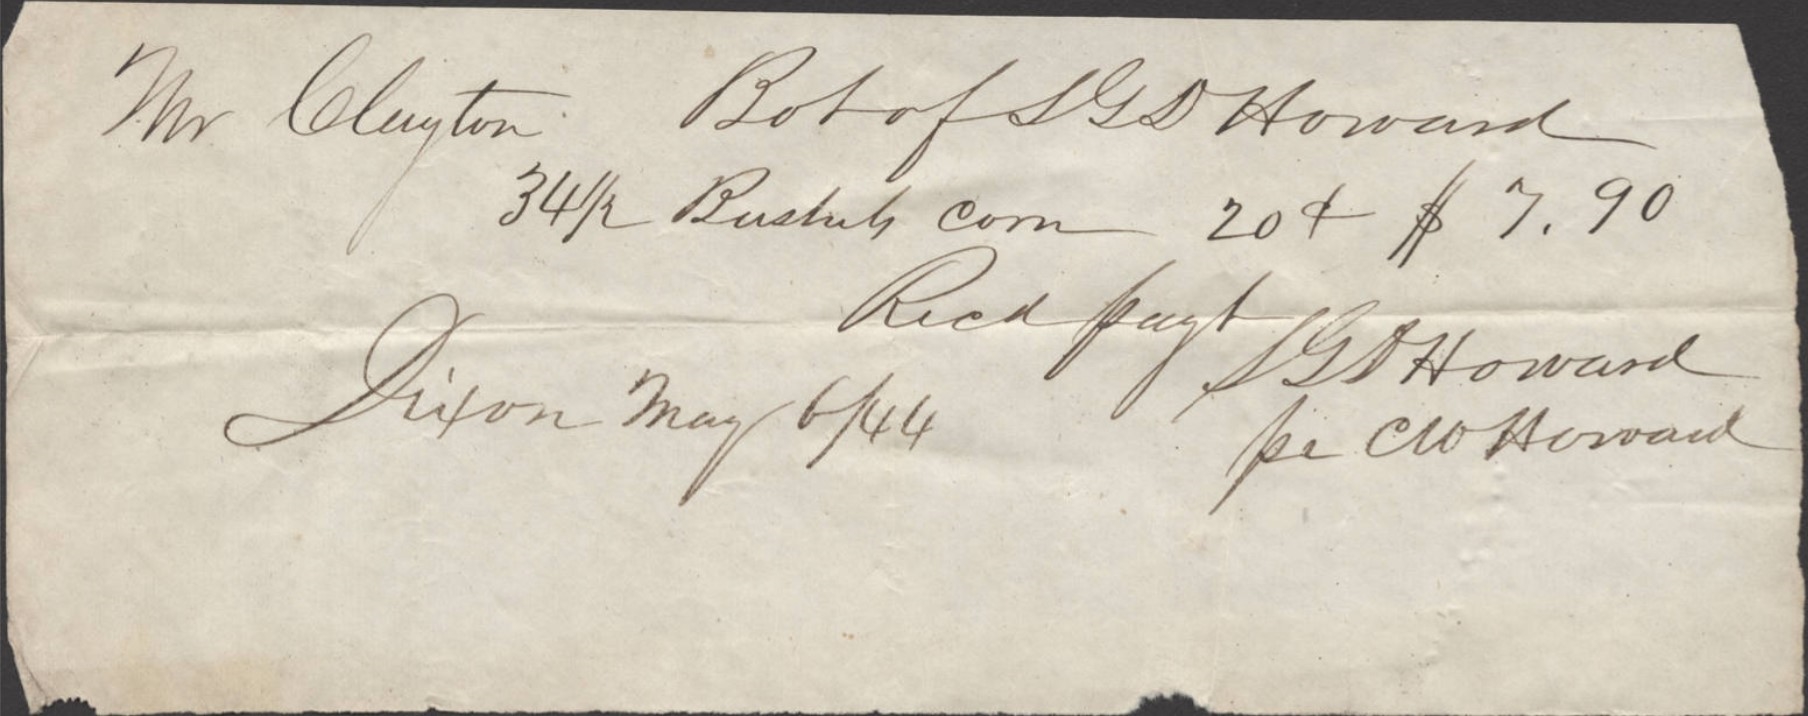 Mr Clayton Bot of S G D Howard
34 1/2 Bushels corn 20¢ $ 7.90
Recd payt
S G D Howard
Dixon May 6/44
pe C W Howard